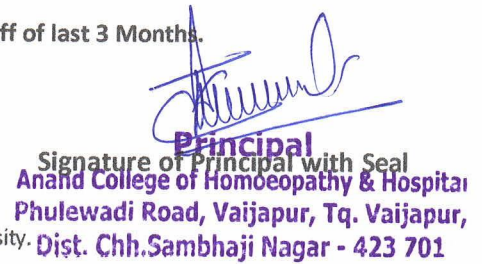 ff of last 3 Months.
Principal
Signature of Principal with Seal
Anand College of Homoeopathy & Hospital
Phulewadi Road, Vaijapur, Tq. Vaijapur,
sity. Dist. Chh.Sambhaji Nagar - 423 701